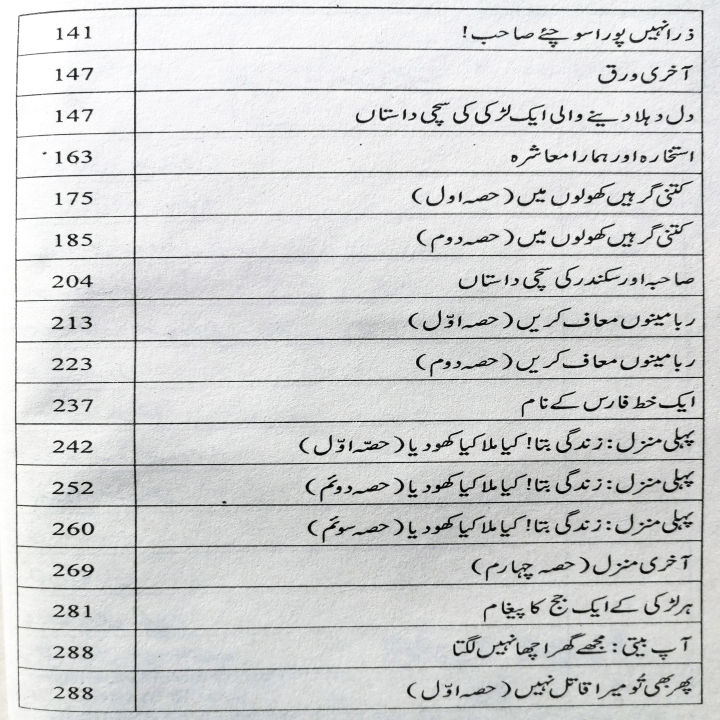 ذرا نہیں پورا سوچئے صاحب! 141
آخری ورق 147
دل دہلا دینے والی ایک لڑکی کی سچی داستاں 147
استخارہ اور ہمارا معاشرہ 163
کتنی گرہیں کھولوں میں (حصہ اول) 175
کتنی گرہیں کھولوں میں (حصہ دوم) 185
صاحبہ اور سکندر کی سچی داستاں 204
ربا مینوں معاف کریں (حصہ اوّل) 213
ربا مینوں معاف کریں (حصہ دوم) 223
ایک خط فارس کے نام 237
پہلی منزل: زندگی بتا! کیا ملا کیا کھو دیا (حصّہ اوّل) 242
پہلی منزل: زندگی بتا! کیا ملا کیا کھو دیا (حصہ دوئم) 252
پہلی منزل: زندگی بتا! کیا ملا کیا کھو دیا (حصہ سوئم) 260
آخری منزل (حصہ چہارم) 269
ہر لڑکی کے ایک جج کا پیغام 281
آپ بیتی: مجھے گھر اچھا نہیں لگتا 288
پھر بھی تُو میرا قاتل نہیں (حصہ اوّل) 288